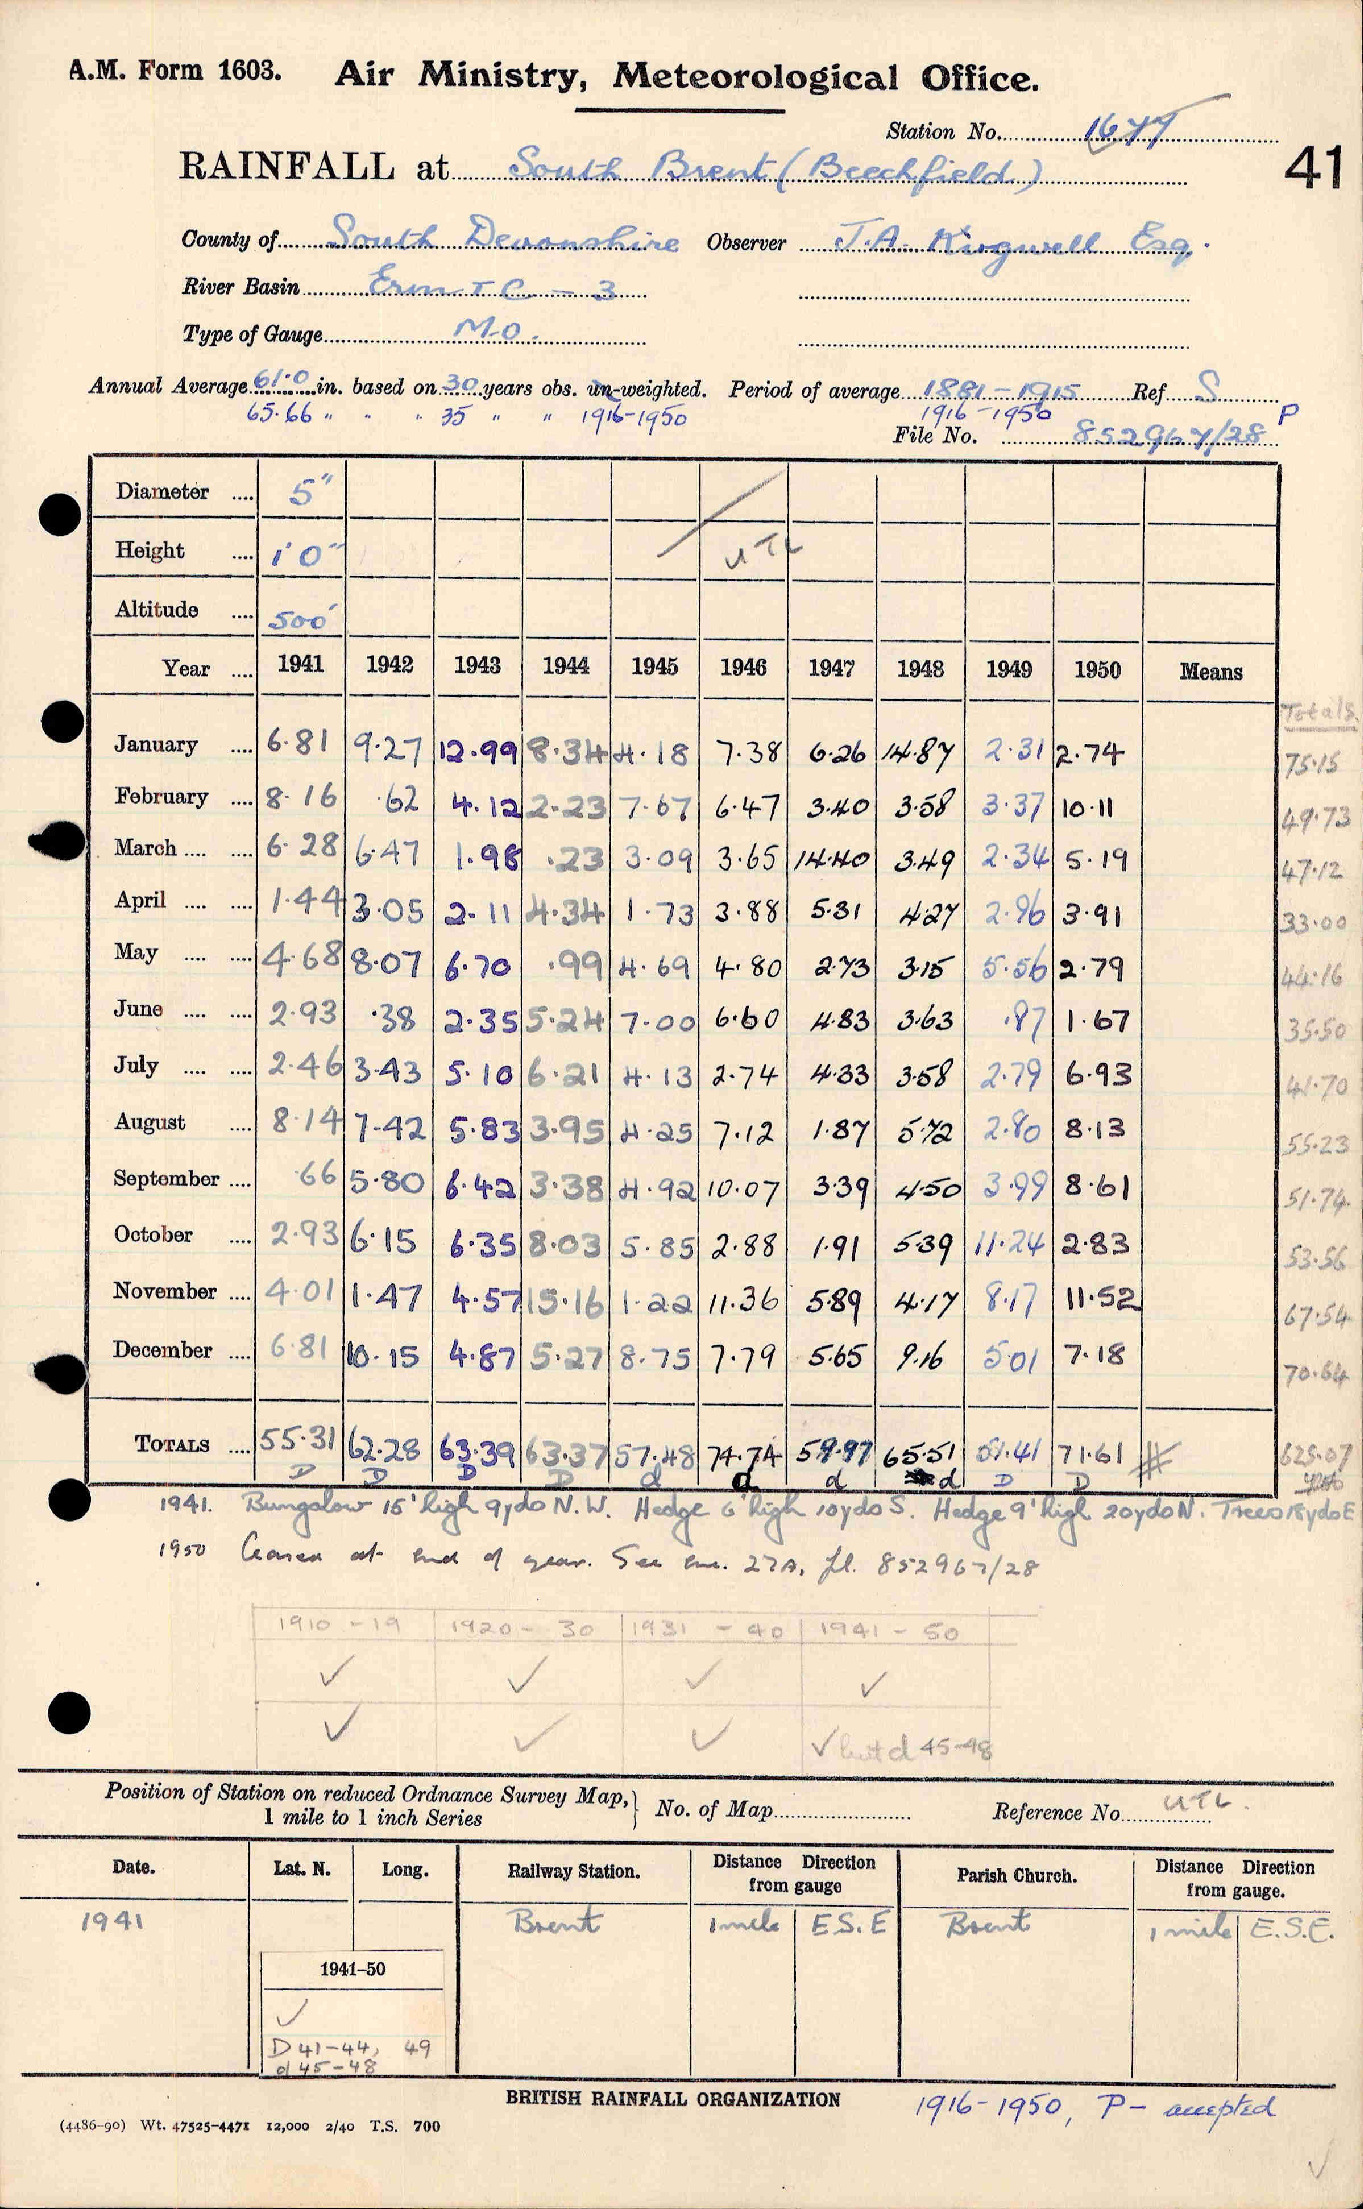 A.M. Form 1603. Air Ministry, Meteorological Office.
Station No. 1677
RAINFALL at South Brent (Beechfield)
41
County of South Devonshire Observer J.A. Kingwell Esq.
River Basin Erm T C - 3
Type of Gauge M.O.
Annual Average 61.0 in. based on 30 years obs. un-weighted. Period of average 1881-1915 Ref S
65.66 " " " 35 " " 1916-1950 1916-1950 P
File No. 852967/28
Diameter .... 5"
Height .... 1'0" UTL
Altitude .... 500'
Year .... 1941 1942 1943 1944 1945 1946 1947 1948 1949 1950 Means
Totals
January .... 6.81 9.27 12.99 8.34 4.18 7.38 6.26 14.87 2.31 2.74 75.15
February .... 8.16 .62 4.12 2.23 7.67 6.47 3.40 3.58 3.37 10.11 49.73
March .... .... 6.28 6.47 1.98 .23 3.09 3.65 14.40 3.49 2.34 5.19 47.12
April .... .... 1.44 3.05 2.11 4.34 1.73 3.88 5.31 4.27 2.96 3.91 33.00
May .... .... 4.68 8.07 6.70 .99 4.69 4.80 2.73 3.15 5.56 2.79 44.16
June .... .... 2.93 .38 2.35 5.24 7.00 6.60 4.83 3.63 .87 1.67 35.50
July .... .... 2.46 3.43 5.10 6.21 4.13 2.74 4.33 3.58 2.79 6.93 41.70
August .... 8.14 7.42 5.83 3.95 4.25 7.12 1.87 5.72 2.80 8.13 55.23
September .... .66 5.80 6.42 3.38 4.92 10.07 3.39 4.50 3.99 8.61 51.74
October .... 2.93 6.15 6.35 8.03 5.85 2.88 1.91 5.39 11.24 2.83 53.56
November .... 4.01 1.47 4.57 15.16 1.22 11.36 5.89 4.17 8.17 11.52 67.54
December .... 6.81 10.15 4.87 5.27 8.75 7.79 5.65 9.16 5.01 7.18 70.64
TOTALS .... 55.31 62.28 63.39 63.37 57.48 74.74 59.97 65.51 51.41 71.61 625.07
D D D D d d d d D D
1941. Bungalow 15' high 9yds N.W. Hedge 6' high 10yds S. Hedge 9' high 20yds N. Trees 18yds E
1950 Ceased at end of year. See enc. 27A, fl. 852967/28
1910 - 19 1920 - 30 1931 - 40 1941 - 50
✓ ✓ ✓ ✓
✓ ✓ ✓ ✓ but d 45-48
Position of Station on reduced Ordnance Survey Map,
1 mile to 1 inch Series
No. of Map Reference No. UTL.
Date. Lat. N. Long. Railway Station. Distance Direction from gauge Parish Church. Distance Direction from gauge.
1941 Brent 1 mile E.S.E Brent 1 mile E.S.E.
1941-50
✓
D 41-44, 49
d 45-48
BRITISH RAINFALL ORGANIZATION
1916-1950, P- accepted
(4486-90) Wt. 47525-4471 12,000 2/40 T.S. 700
✓